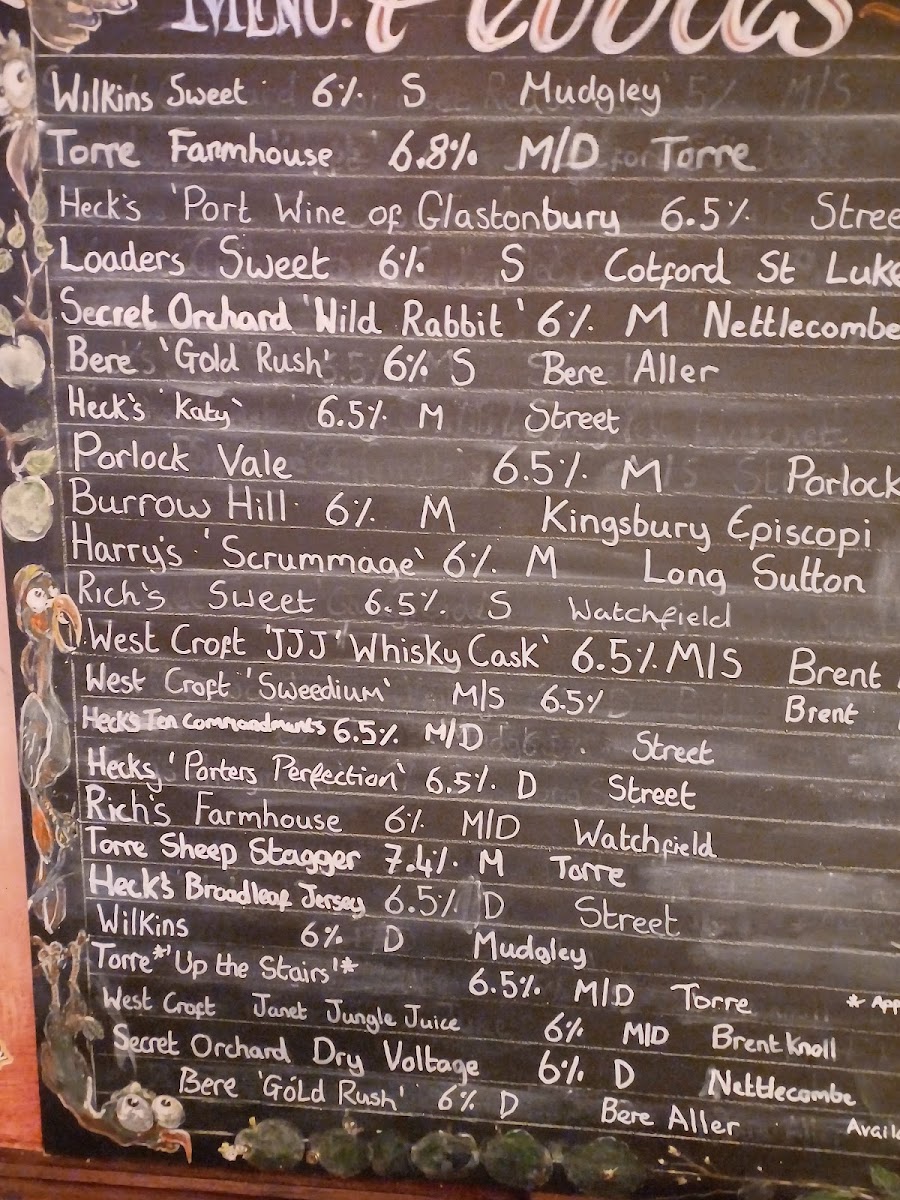 MENU.
Wilkins Sweet 6% S Mudgley
Torre Farmhouse 6.8% M/D Torre
Heck's 'Port Wine of Glastonbury 6.5% Stree
Loaders Sweet 6% S Cotford St Luke
Secret Orchard 'Wild Rabbit' 6% M Nettlecombe
Bere 'Gold Rush' 6% S Bere Aller
Heck's 'Katy' 6.5% M Street
Porlock Vale 6.5% M Porlock
Burrow Hill 6% M Kingsbury Episcopi
Harry's 'Scrummage' 6% M Long Sutton
Rich's Sweet 6.5% S Watchfield
West Croft 'JJJ' Whisky Cask' 6.5% M/S Brent
West Croft 'Sweedium' M/S 6.5% Brent
Hecks Ten Commandments 6.5% M/D Street
Hecks 'Porters Perfection' 6.5% D Street
Rich's Farmhouse 6% M/D Watchfield
Torre Sheep Stagger 7.4% M Torre
Heck's Broadleaf Jersey 6.5% D Street
Wilkins 6% D Mudgley
Torre*'Up the Stairs'* 6.5% M/D Torre * App
West Croft Janet Jungle Juice 6% M/D Brent Knoll
Secret Orchard Dry Voltage 6% D Nettlecombe
Bere 'Gold Rush' 6% D Bere Aller Avail